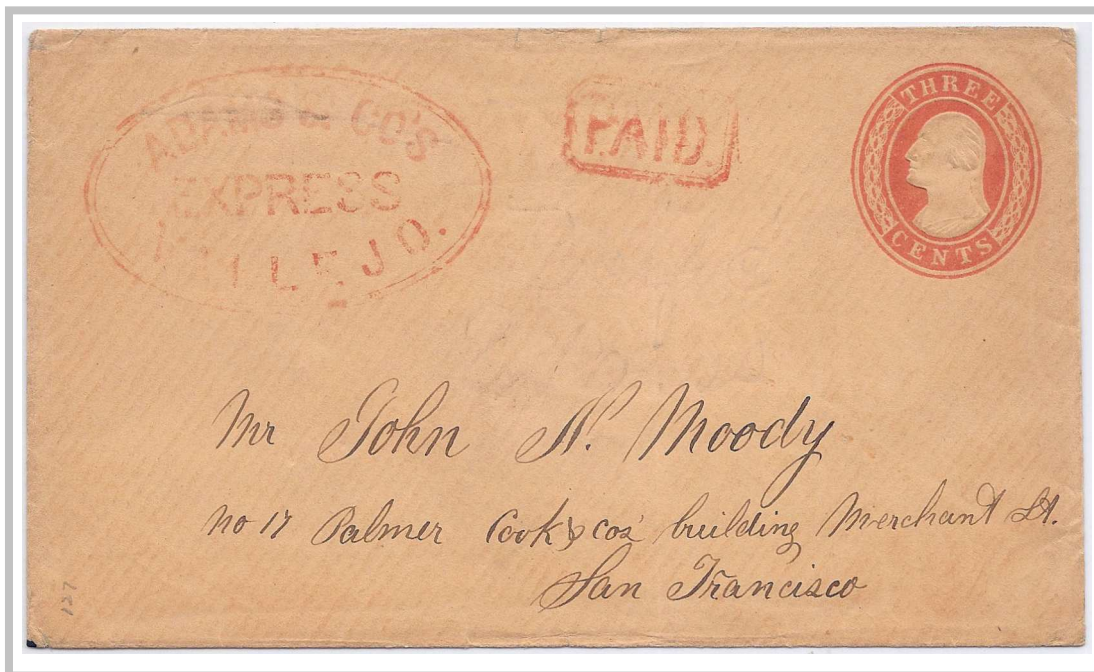 ADAMS & CO'S
EXPRESS
VALLEJO.
PAID
THREE
CENTS
Mr John N. Moody
No 17 Palmer Cook & cos' building Merchant St.
San Francisco
127